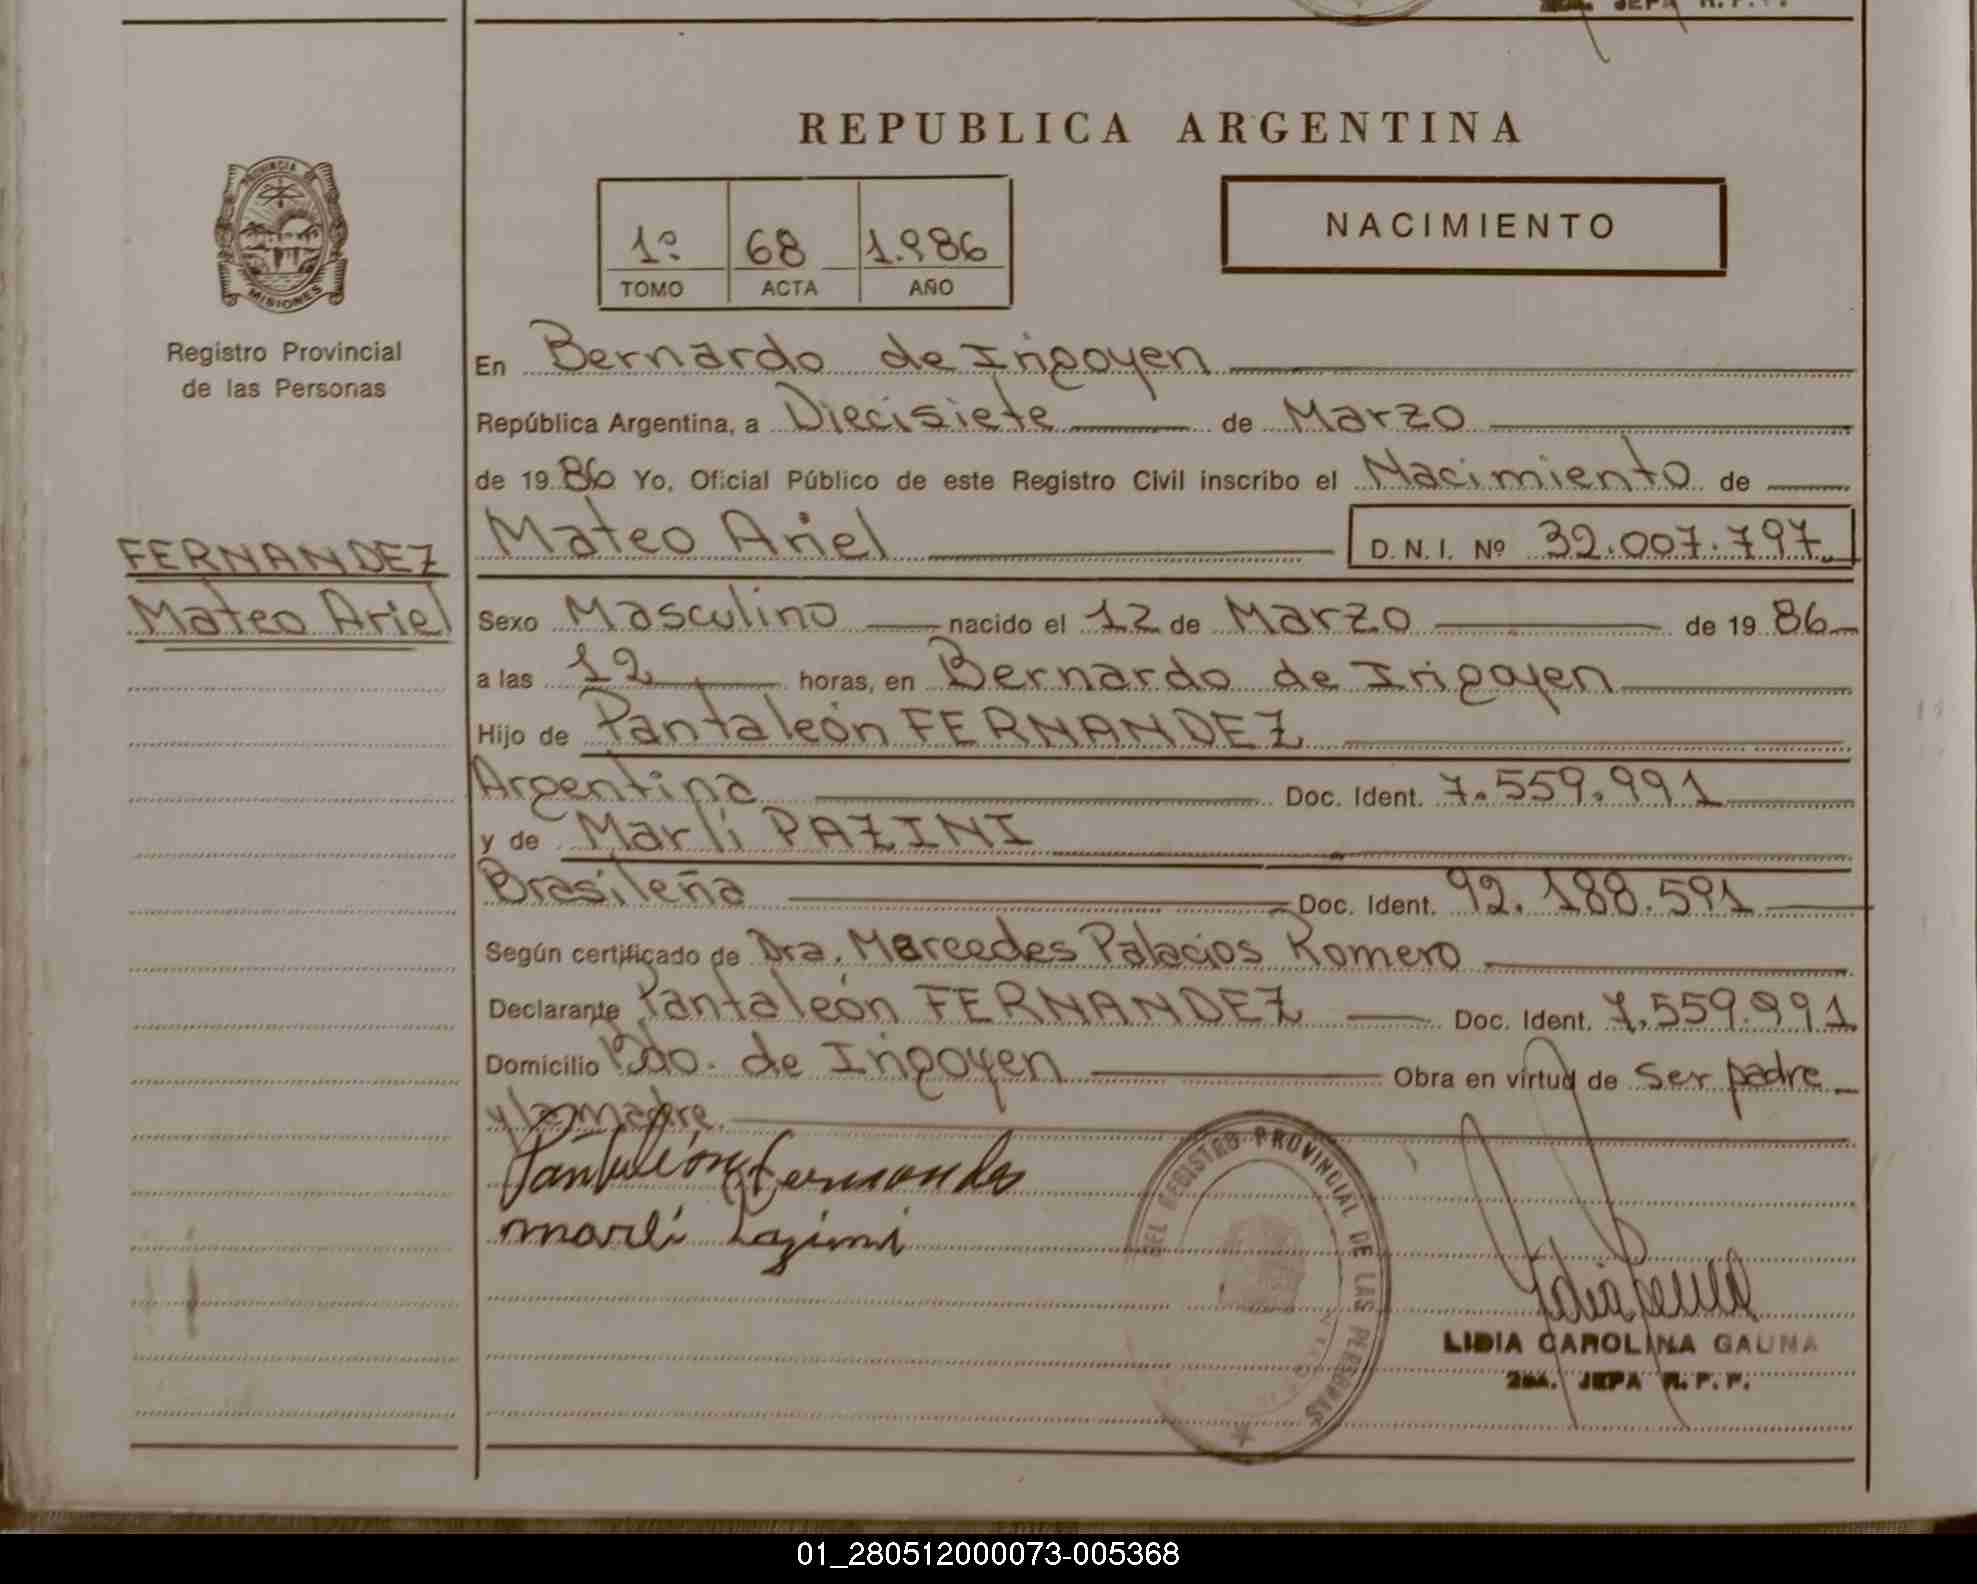 REPUBLICA ARGENTINA
PROVINCIA
MISIONES
1º 68 1.986
TOMO ACTA AÑO
NACIMIENTO
Registro Provincial
de las Personas
FERNANDEZ
Mateo Ariel
En Bernardo de Irigoyen
República Argentina, a Diecisiete de Marzo
de 1986 Yo, Oficial Público de este Registro Civil inscribo el Nacimiento de
Mateo Ariel D.N.I. Nº 32.007.797
Sexo Masculino nacido el 12 de Marzo de 1986
a las 12 horas, en Bernardo de Irigoyen
Hijo de Pantaleón FERNANDEZ
Argentina Doc. Ident. 7.559.991
y de Marli PAZINI
Brasileña Doc. Ident. 92.188.591
Según certificado de Dra. Mercedes Palacios Romero
Declarante Pantaleón FERNANDEZ Doc. Ident. 7.559.991
Domicilio Bdo. de Irigoyen Obra en virtud de ser padre
y la madre.
Pantaleón Fernandes
marli Pazini
DEL REGISTRO PROVINCIAL DE LAS PERSONAS
LIDIA CAROLINA GAUNA
2da. JEFA R.P.P.
01_280512000073-005368